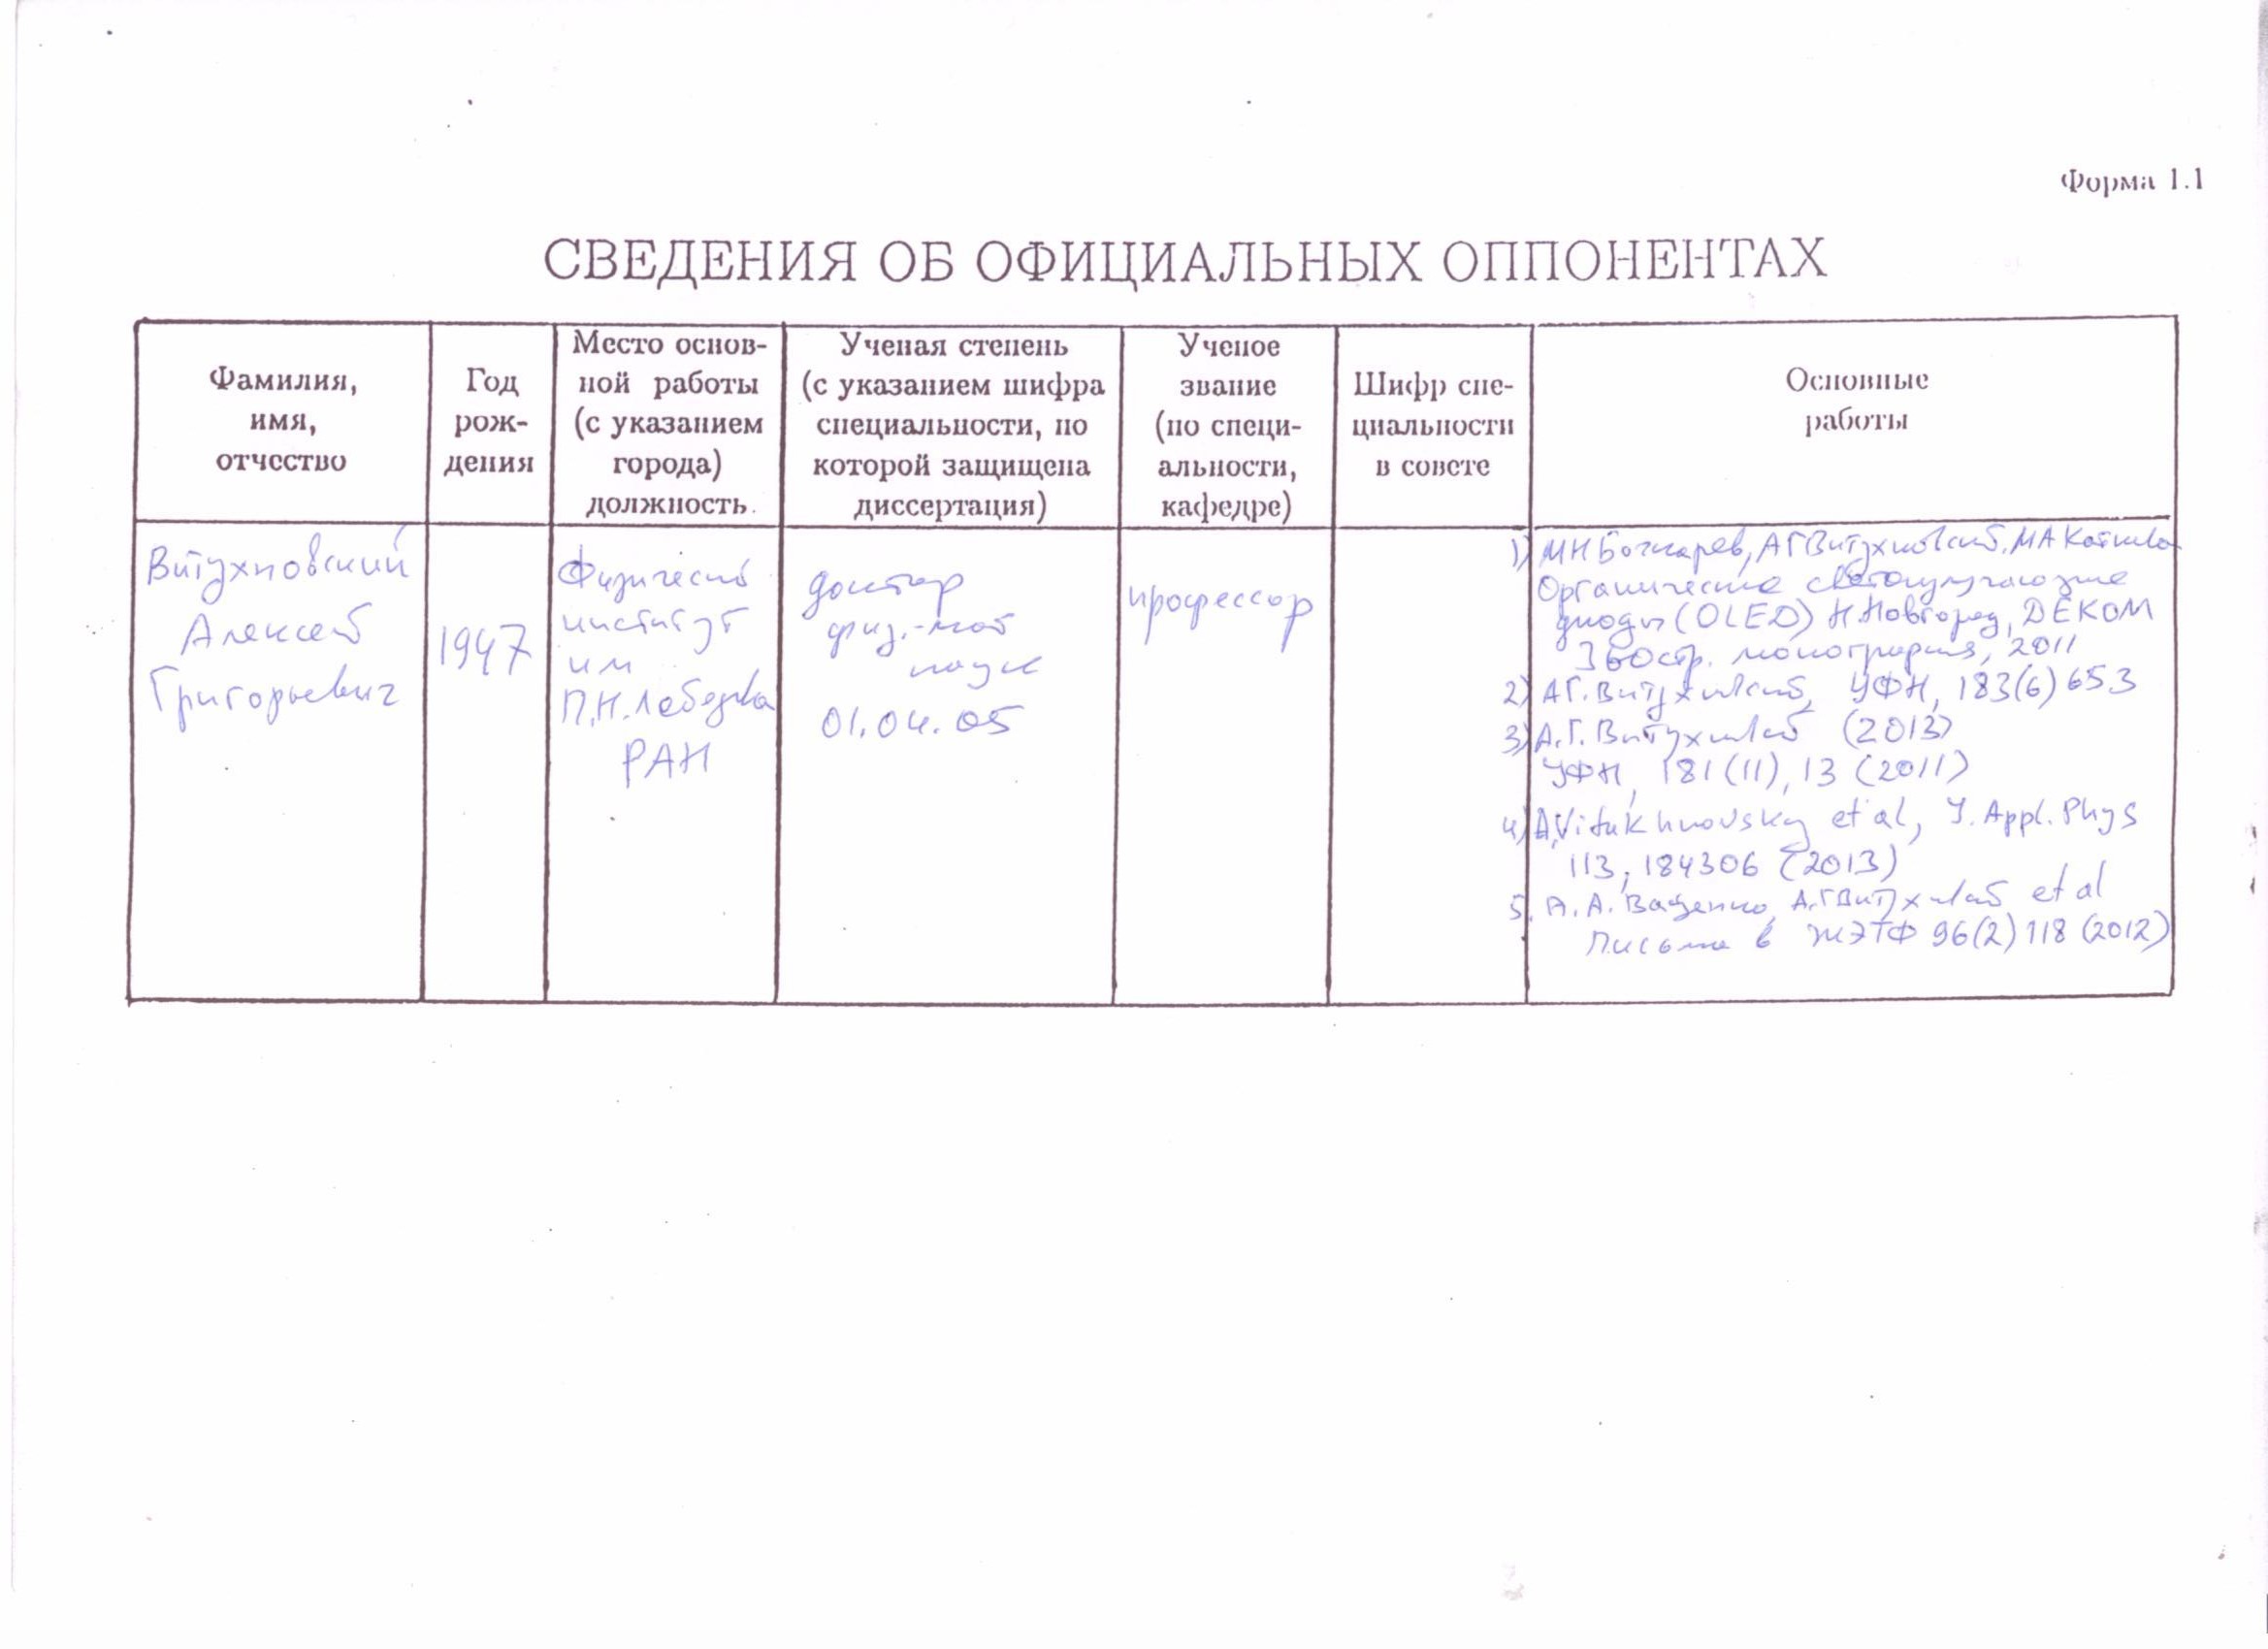 Форма 1.1
СВЕДЕНИЯ ОБ ОФИЦИАЛЬНЫХ ОППОНЕНТАХ
Фамилия,
имя,
отчество
Год
рож-
дения
Место основ-
ной работы
(с указанием
города)
должность.
Ученая степень
(с указанием шифра
специальности, по
которой защищена
диссертация)
Ученое
звание
(по специ-
альности,
кафедре)
Шифр спе-
циальности
в совете
Основные
работы
Витухновский
Алексей
Григорьевич
1947
Физический
институт
им
П.Н. Лебедева
РАН
доктор
физ.-мат
наук
01.04.05
профессор
1) МН Бочкарев, АГ Витухновский, МА Каткова
Органические светоизлучающие
диоды (OLED) Н.Новгород, ДЕКОМ
360 стр. монография, 2011
2) АГ. Витухновский, УФН, 183(6) 653
(2013)
3) А.Г. Витухновский
УФН, 181(11), 13 (2011)
4) A.Vitukhnovsky et al, J. Appl. Phys
113, 184306 (2013)
5. А.А. Ващенко, А.Г Витухновский et al
Письма в ЖЭТФ 96(2) 118 (2012)